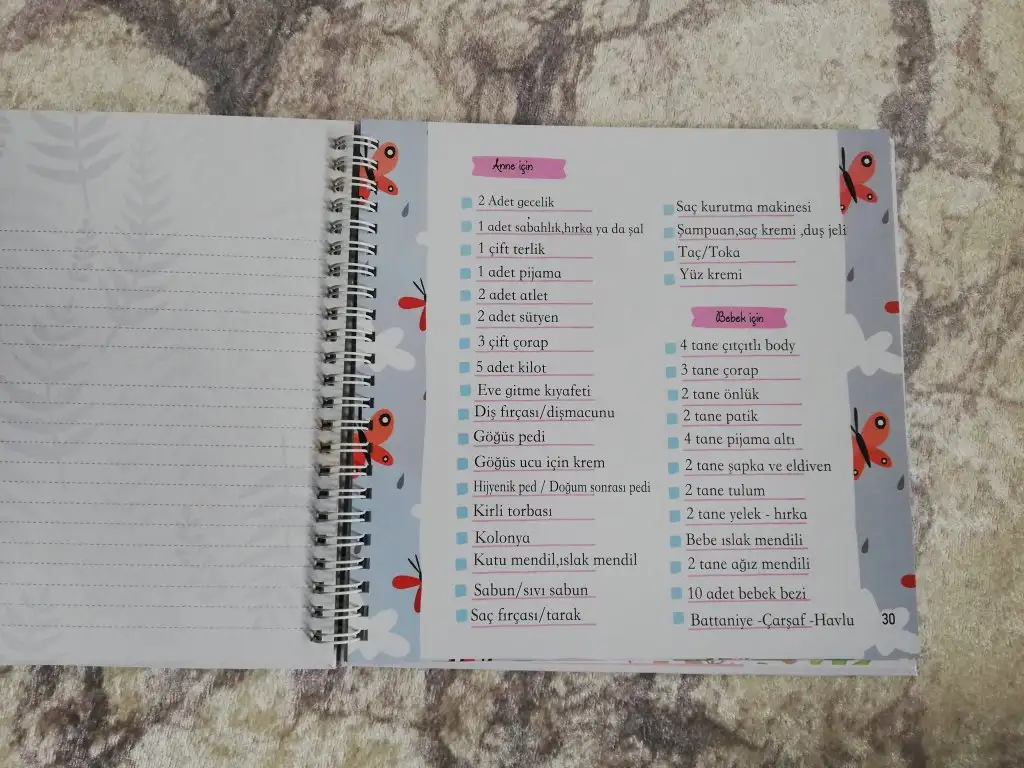 Anne için
2 Adet gecelik
1 adet sabahlık,hırka ya da şal
1 çift terlik
1 adet pijama
2 adet atlet
2 adet sütyen
3 çift çorap
5 adet kilot
Eve gitme kıyafeti
Diş fırçası/dişmacunu
Göğüs pedi
Göğüs ucu için krem
Hijyenik ped / Doğum sonrası pedi
Kirli torbası
Kolonya
Kutu mendil,ıslak mendil
Sabun/sıvı sabun
Saç fırçası/tarak
Saç kurutma makinesi
Şampuan,saç kremi ,duş jeli
Taç/Toka
Yüz kremi
Bebek için
4 tane çıtçıtlı body
3 tane çorap
2 tane önlük
2 tane patik
4 tane pijama altı
2 tane şapka ve eldiven
2 tane tulum
2 tane yelek - hırka
Bebe ıslak mendili
2 tane ağız mendili
10 adet bebek bezi
Battaniye -Çarşaf -Havlu
30